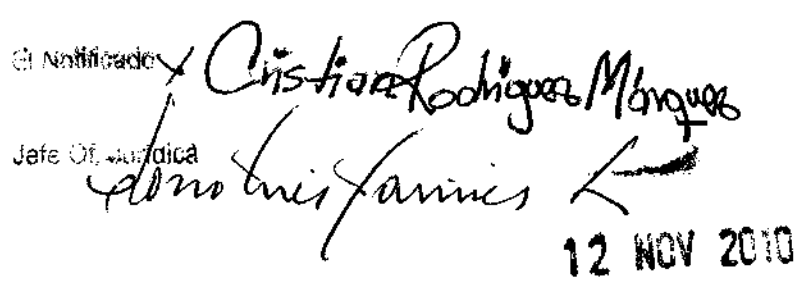 El Notificado X Cristian Rodriguez Márquez
Jefe Of. Juridica
Luis
12 NOV 2010